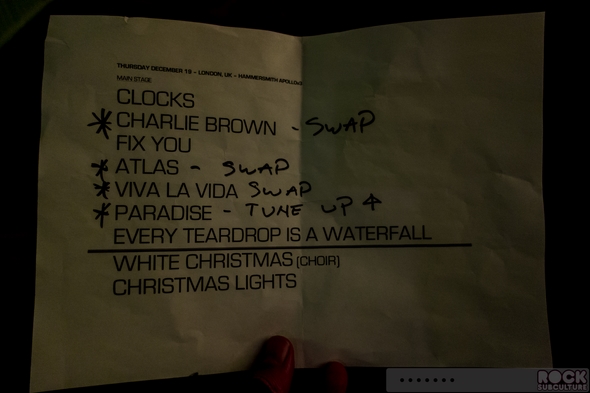 THURSDAY DECEMBER 19 - LONDON, UK - HAMMERSMITH APOLLO
MAIN STAGE
CLOCKS
* CHARLIE BROWN - SWAP
FIX YOU
* ATLAS - SWAP
* VIVA LA VIDA SWAP
* PARADISE - TUNE UP ↑
EVERY TEARDROP IS A WATERFALL
WHITE CHRISTMAS (CHOIR)
CHRISTMAS LIGHTS
ROCK
SUBCULTURE